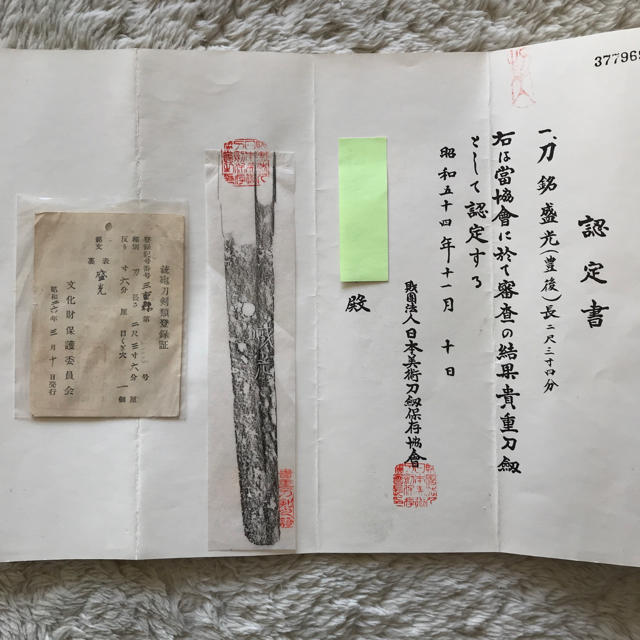 377969
認定書
一、刀 銘 盛光(豊後)長二尺三寸四分
右は當協會に於て審査の結果貴重刀劔
として認定する
昭和五十四年十一月 十日
財團法人日本美術刀劔保存協會
殿
銃砲刀剣類登録証
登録記号番号 三重 第 号
種別 刀 長さ 二尺三寸六分 厘
反り 寸六分 厘 目くぎ穴 一個
銘文 表 盛光
裏
文化財保護委員会
昭和 年 三月十 日発行